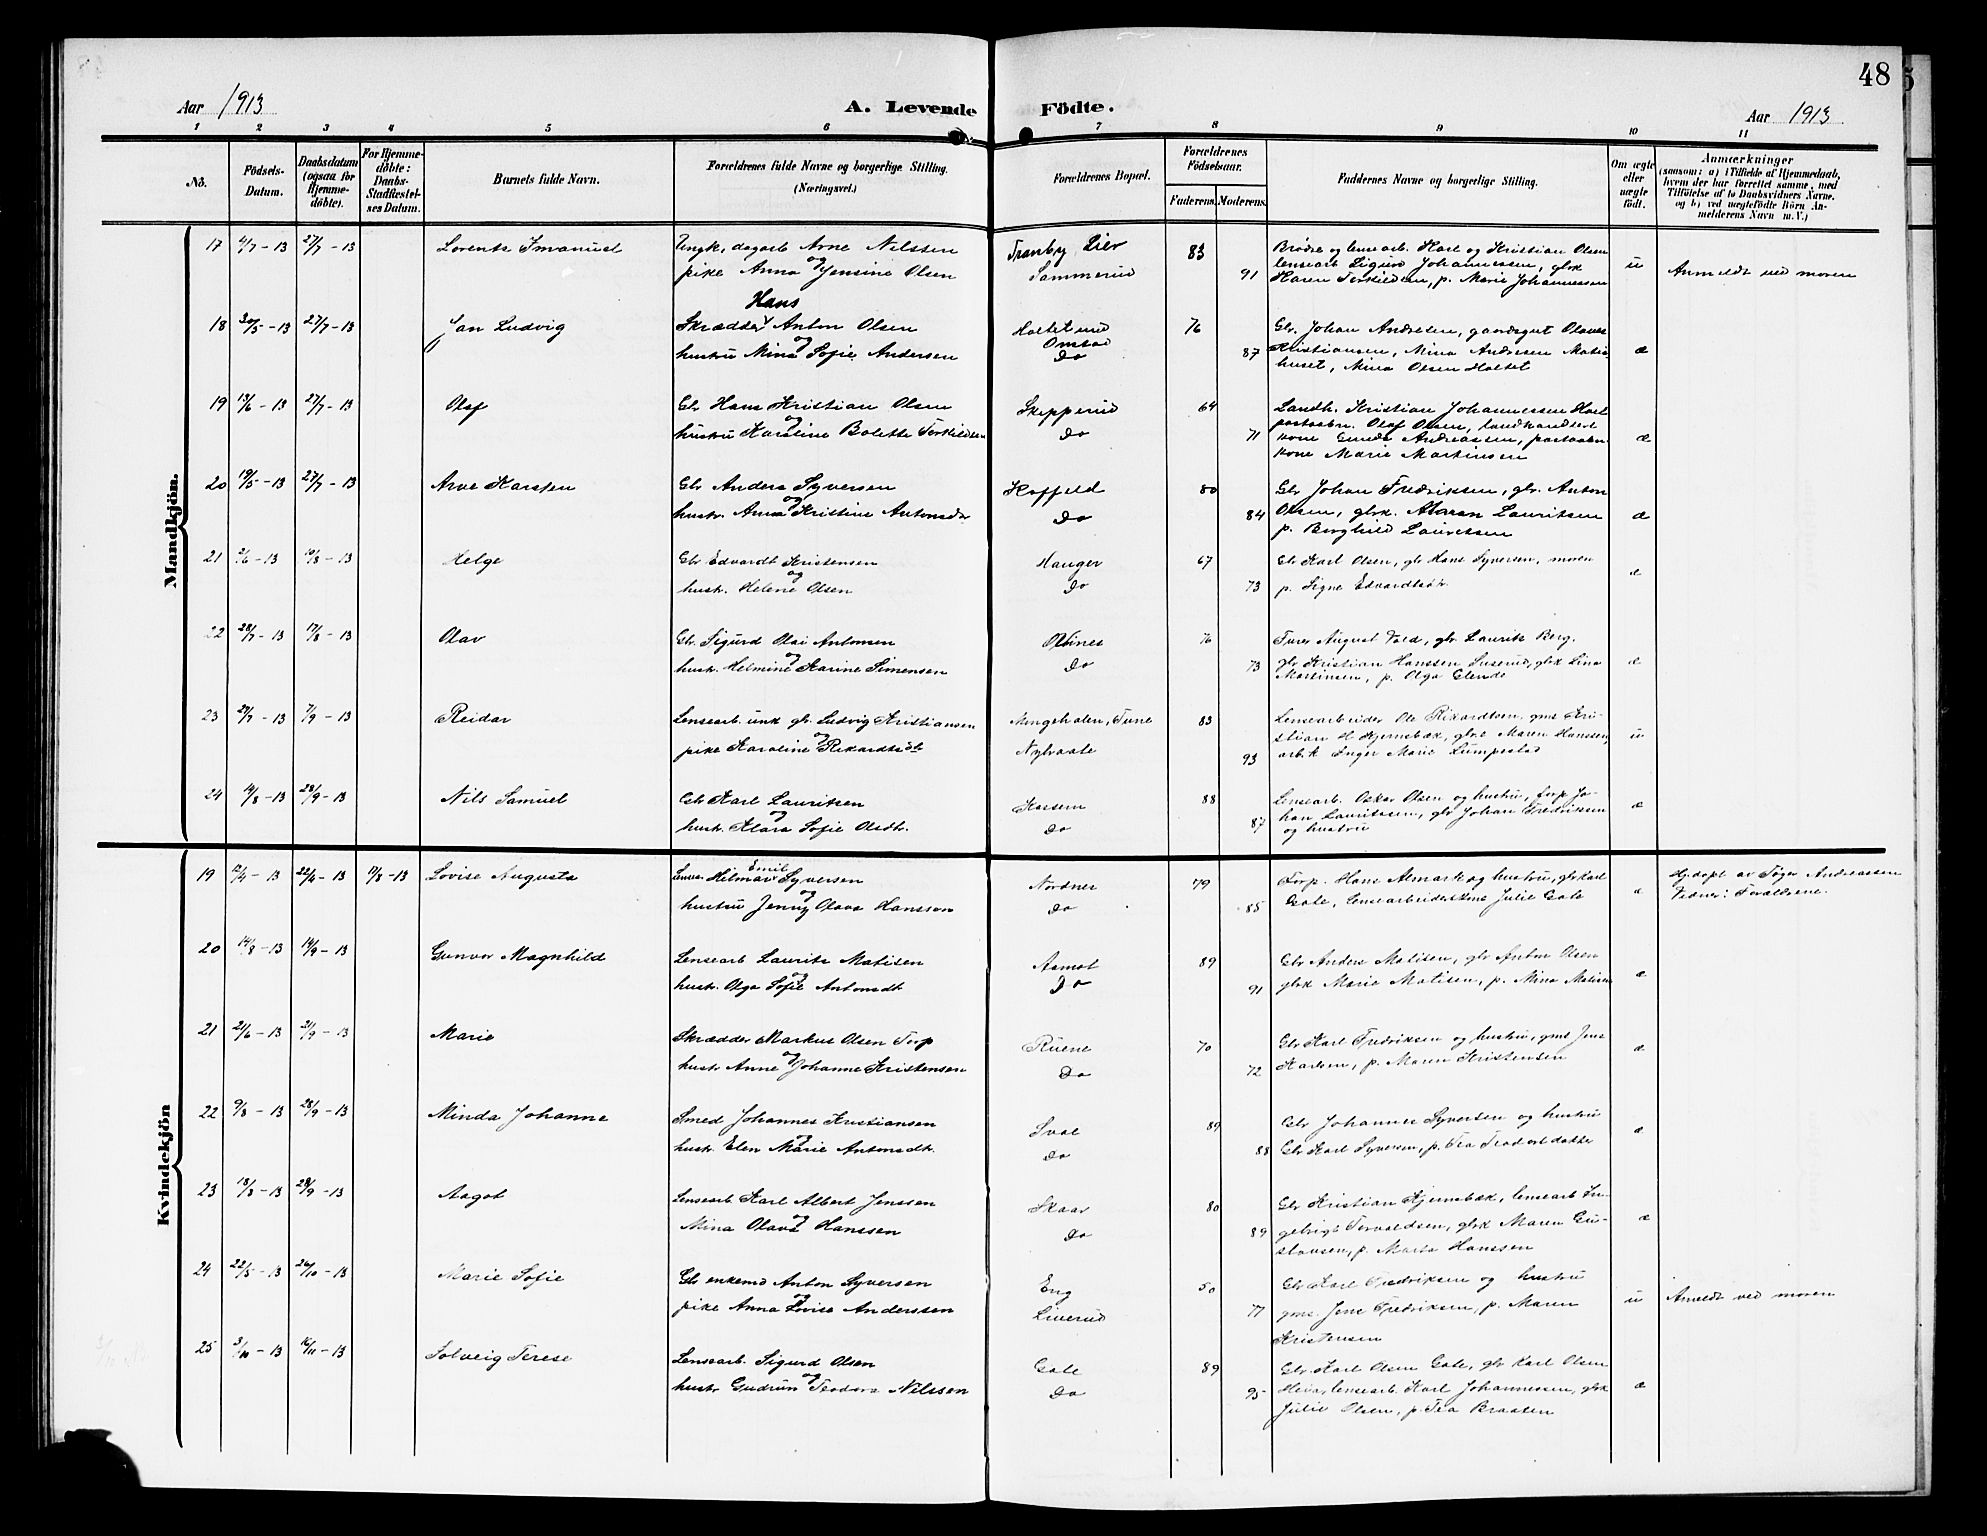 48
Aar 1913
A. Levende Födte.
Aar 1913
1 2 3 4 5 6 7 8 9 10 11
No.
Födsels-
Datum.
Daabsdatum
(ogsaa for
Hjemme-
döbte).
For Hjemme-
döbte:
Daabs-
Stadfæstel-
ses Datum.
Barnets fulde Navn.
Forældrenes fulde Navne og borgerlige Stilling.
(Næringsvei.)
Forældrenes Bopæl.
Forældrenes
Födselsaar.
Faderens. Moderens.
Faddernes Navne og borgerlige Stilling.
Om ægte
eller
uægte
födt.
Anmærkninger
(saasom: a) i Tilfælde af Hjemmedaab,
hvem der har forrettet samme, med
Tilföielse af to Daabsvidners Navne.
og b) ved uægtefödte Börn An-
melderens Navn m. V.)
Mandkjön.
17 4/7-13 27/7-13 Lorents Imanuel Ungk, dagarb Arne Nilssen Tranby Lier 83 Brødre og lensearb. Karl og Kristian Olsen
og
pike Anna Jensine Olsen Sammerud 91 lensearb Sigurd Johannessen, gbrk u Anmeldt ved moren
Karen Terkildsen, p. Marie Johannessen
Hans
18 30/5-13 27/7-13 Jan Ludvig Skrædder Anton Olsen 76 Gbr. Johan Andresen, gaardsgut Olaves
og
hustru Mina Sofie Andersen Do 87 Kristiansen, Mina Andresen æ
huset, Mina Olsen Holtet
19 13/6-13 27/7-13 Olaf Gbr Hans Kristian Olsen Skipperud 64 Landh. Kristian Johannessen
og
hustru Karoline Bolette Terkildsen Do 71 postaabn. Olaf Olsen, landhandlers æ
kone Andreassen, postaabn
kone Marie Martinsen
20 19/5-13 27/7-13 Arve Karsten Gbr Anders Syversen Hoffeld 80 Gbr Johan Fredriksen, gbr. Anton
og
hustr. Anna Kristine Antonsdr Do 84 Olsen, gbrk. Maren Lauritsen æ
p. Borghild Lauritsen
21 2/6-13 10/8-13 Helge Gbr Edvardt Kristensen Hauger 67 Gbr Karl Olsen, gbr Hans Syversen, moren
og
hustr. Helene Olsen Do 73 p. Signe Edvardtsdtr. æ
22 28/7-13 17/8-13 Olav Gbr. Sigurd Olai Antonsen 76 August Vold, gbr Laurits Berg.
og
hustr. Helmine Karine Simensen Do 73 gbr Kristian Hanssen Suserud, gbrk Lina æ
Martinsen, p. Olga
23 29/7-13 7/9-13 Reidar Lensearb. unk gbr. Ludvig Kristiansen Tune 83 Lensearbeider Ole Rikardtsen, gms Kri-
og
pike Karoline Rikardtsdtr Nylraate 93 stian H Kjernsbæk, gbrk Maren Hanssen, u
arb.k Inger Marie Lumpestad
24 14/8-13 28/9-13 Nils Samuel Gbr Karl Lauritsen 88 Lensearb. Oskar Olsen og hustru, forp Jo-
og
hustr. Klara Sofie Olsdtr. Do 87 han Lauritssen, gbr Johan Fredriksen æ
og hustru
Kvindekjön
19 12/4-13 22/4-13 17/8-13 Lovise Augusta Hilmar Emil Syversen Nordnes 79 Forp. Hans Asmark og hustru, gbr Karl Hj.døpt av Søger Andreassen
og
hustru Jenny Olava Hansson Do 85 Gale, lensearbeiderskone Julie Gale æ Vidner: Foraldrene.
20 14/8-13 14/9-13 Gunvor Magnhild Lensearb Laurits Matisen Aamot 89 Gbr Anders Matisen, gbr Anton Olsen
og
hustr. Olga Sofie Antonsdt. Do 91 gbrk Marie Matisen, p. Mina Matisen æ
21 21/6-13 21/9-13 Marie Skrædder Markus Olsen Torp Ruene 70 Gbr Karl Fredriksen og hustru, gms Jens
og
hustr Anne Johanne Kristensen Do 72 Karlsen, p. Maren Kristensen æ
22 9/8-13 28/9-13 Minda Johanne Smed Johannes Kristiansen Svae 89 Gbr Johannes Syversen og hustru
og
hustr. Elen Marie Antonsdtr. Do 88 Gbr Karl Syversen, p. Tea æ
23 18/8-13 28/9-13 Aagot Lensearb Karl Albert Jenssen Skaar 80 Gbr Kristian Kjernsbæk, lensearb In-
og
Mina Olava Hanssen Do 89 gebrigt Torvaldsen, gbrk Maren Gu- æ
stavsen, p. Marta Hanssen
24 22/5-13 26/10-13 Marie Sofie Gbr enkemd Anton Syversen Eng 50 Gbr Karl Fredriksen og hustru
og
pike Anna Lovise Anderssen Liverud 77 gms. Jens Fredriksen, p. Maren u Anmeldt ved moren
Kristensen
25 3/10-13 16/11-13 Solveig Terese Lensearb. Sigurd Olsen Gale 89 Gbr Karl Olsen Gale, gbr Karl Olsen
og
hustr Gudrun Teodora Nilssen Do 95 Heia, lensearb. Karl Johannessen, gbrk æ
Julie Olsen, p. Tea Braaten